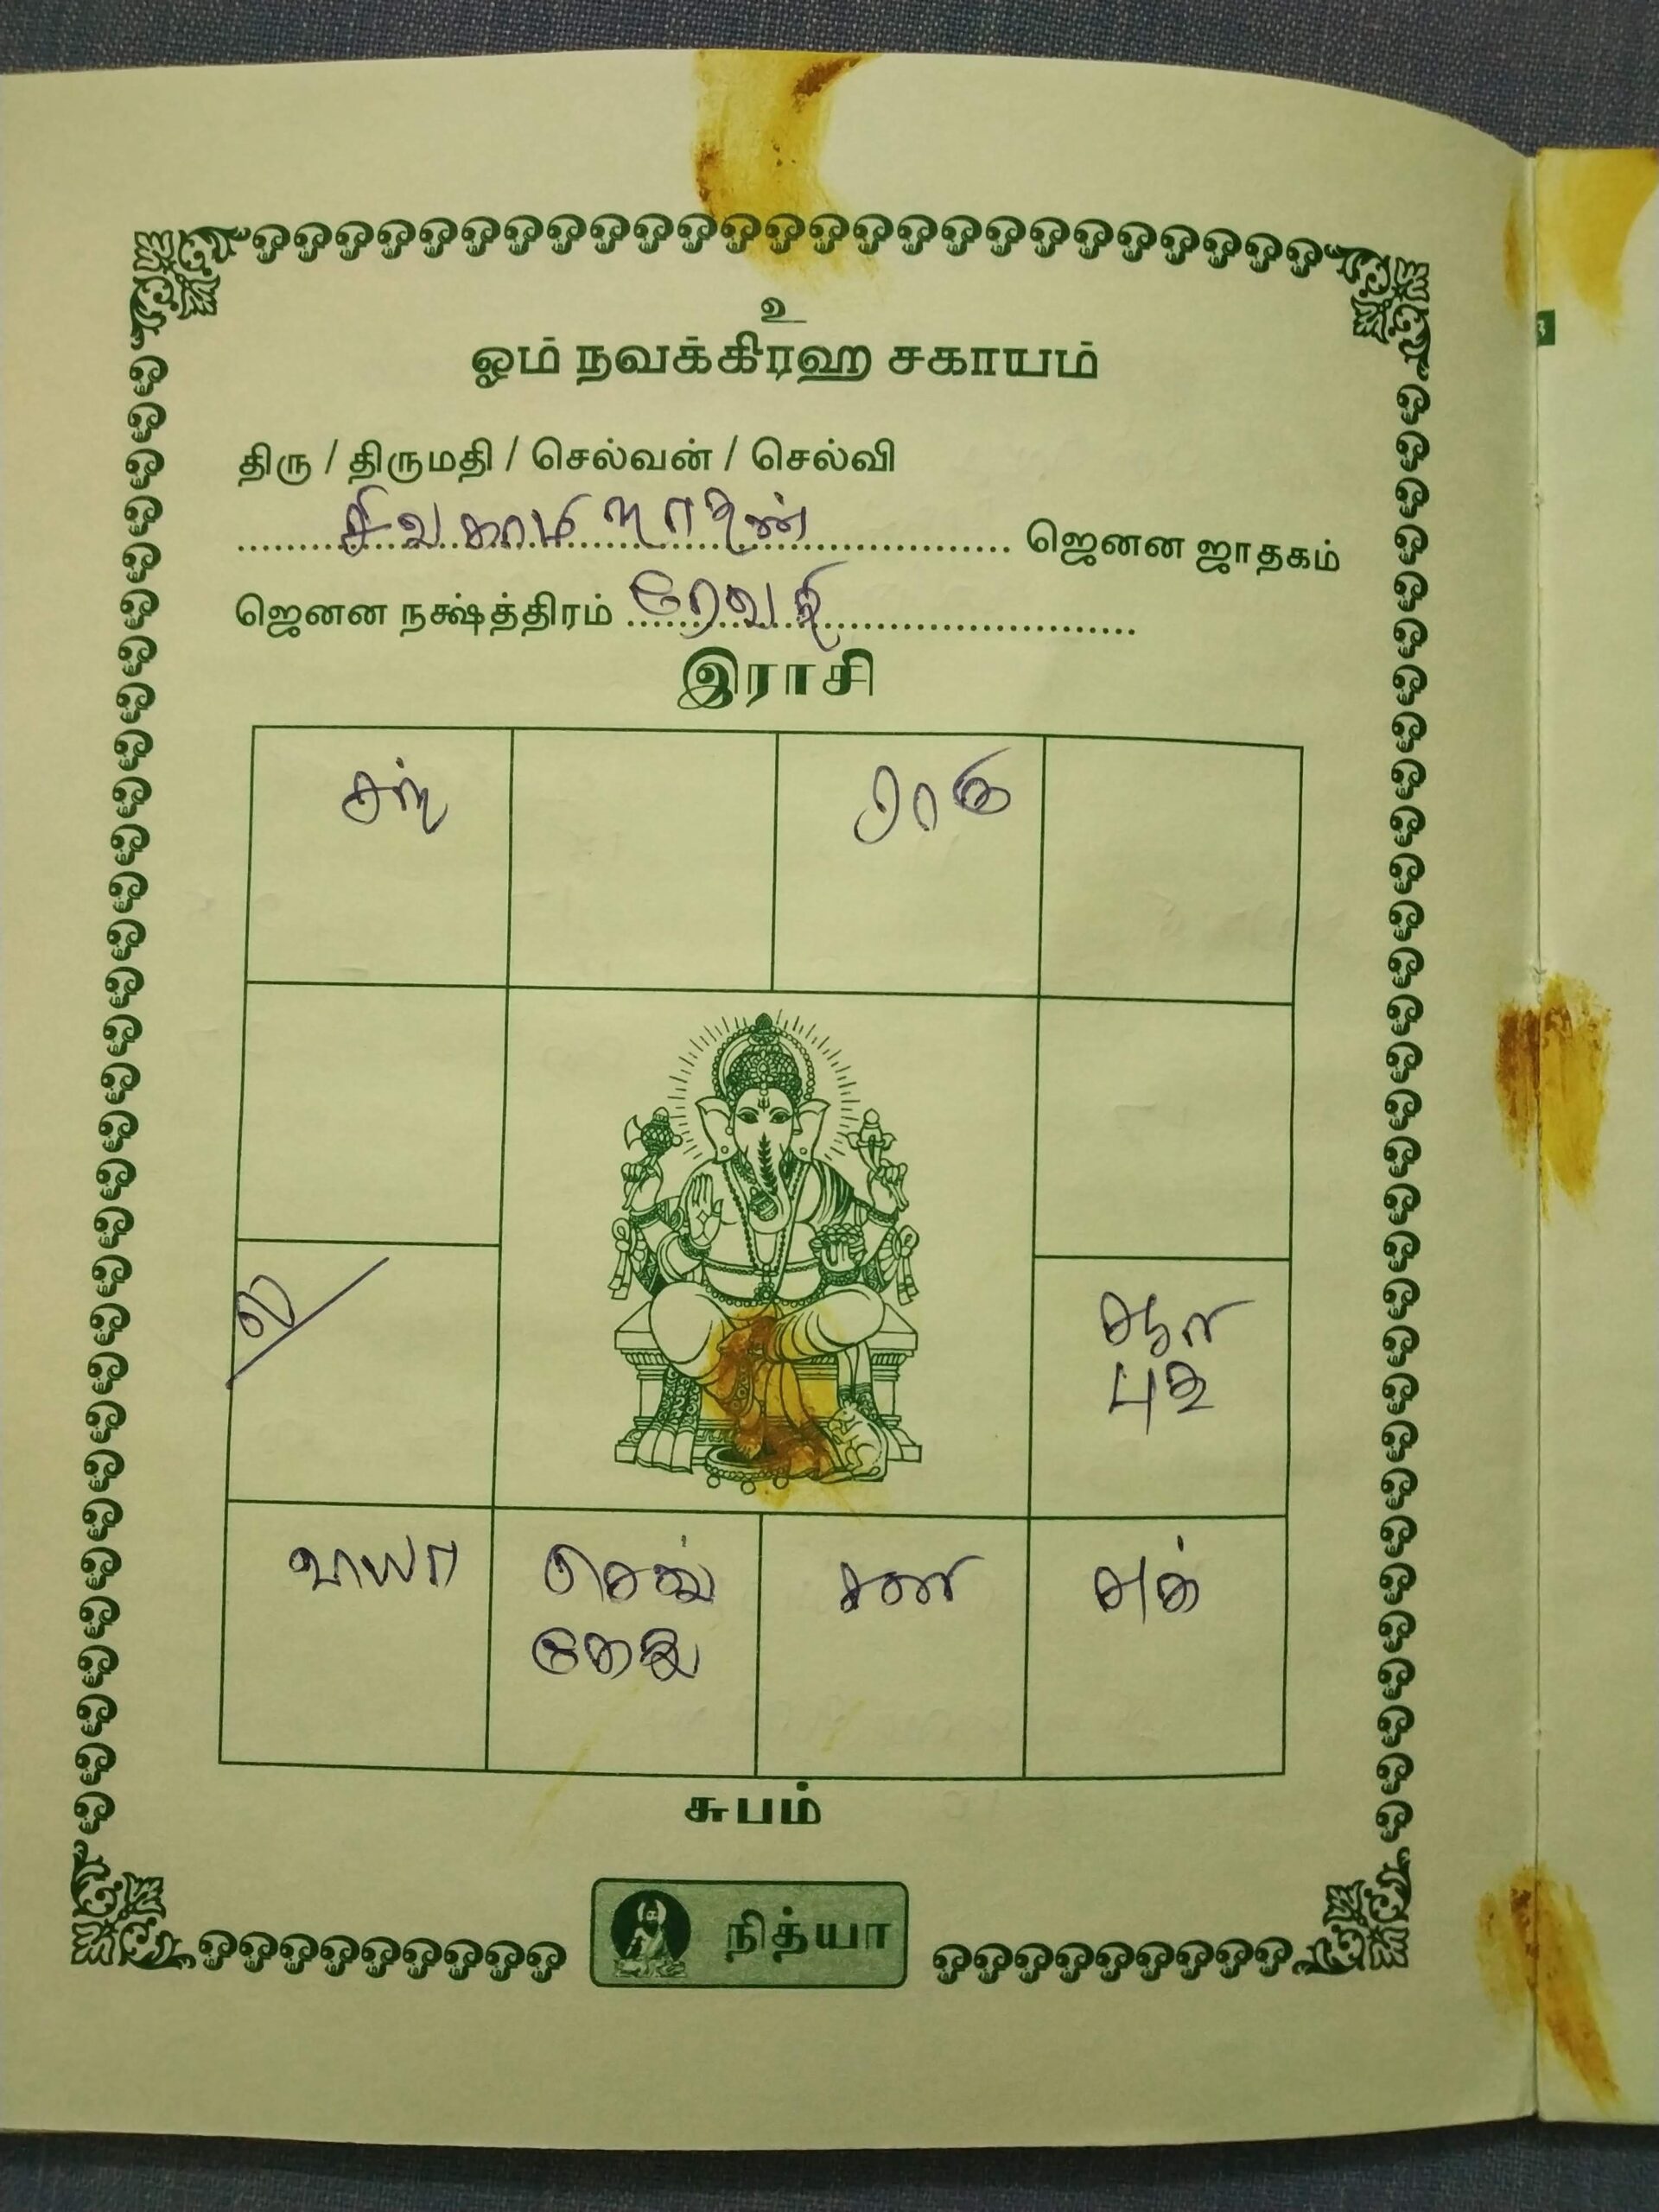 உ
ஓம் நவக்கிரஹ சகாயம்
திரு / திருமதி / செல்வன் / செல்வி
சிவகாமிநாதன் ஜெனன ஜாதகம்
ஜெனன நக்ஷ்த்திரம் ரேவதி
இராசி
சந் ராகு
ல
சூரி
புத
வியா செவ் சனி சுக்
கேது
சுபம்
நித்யா